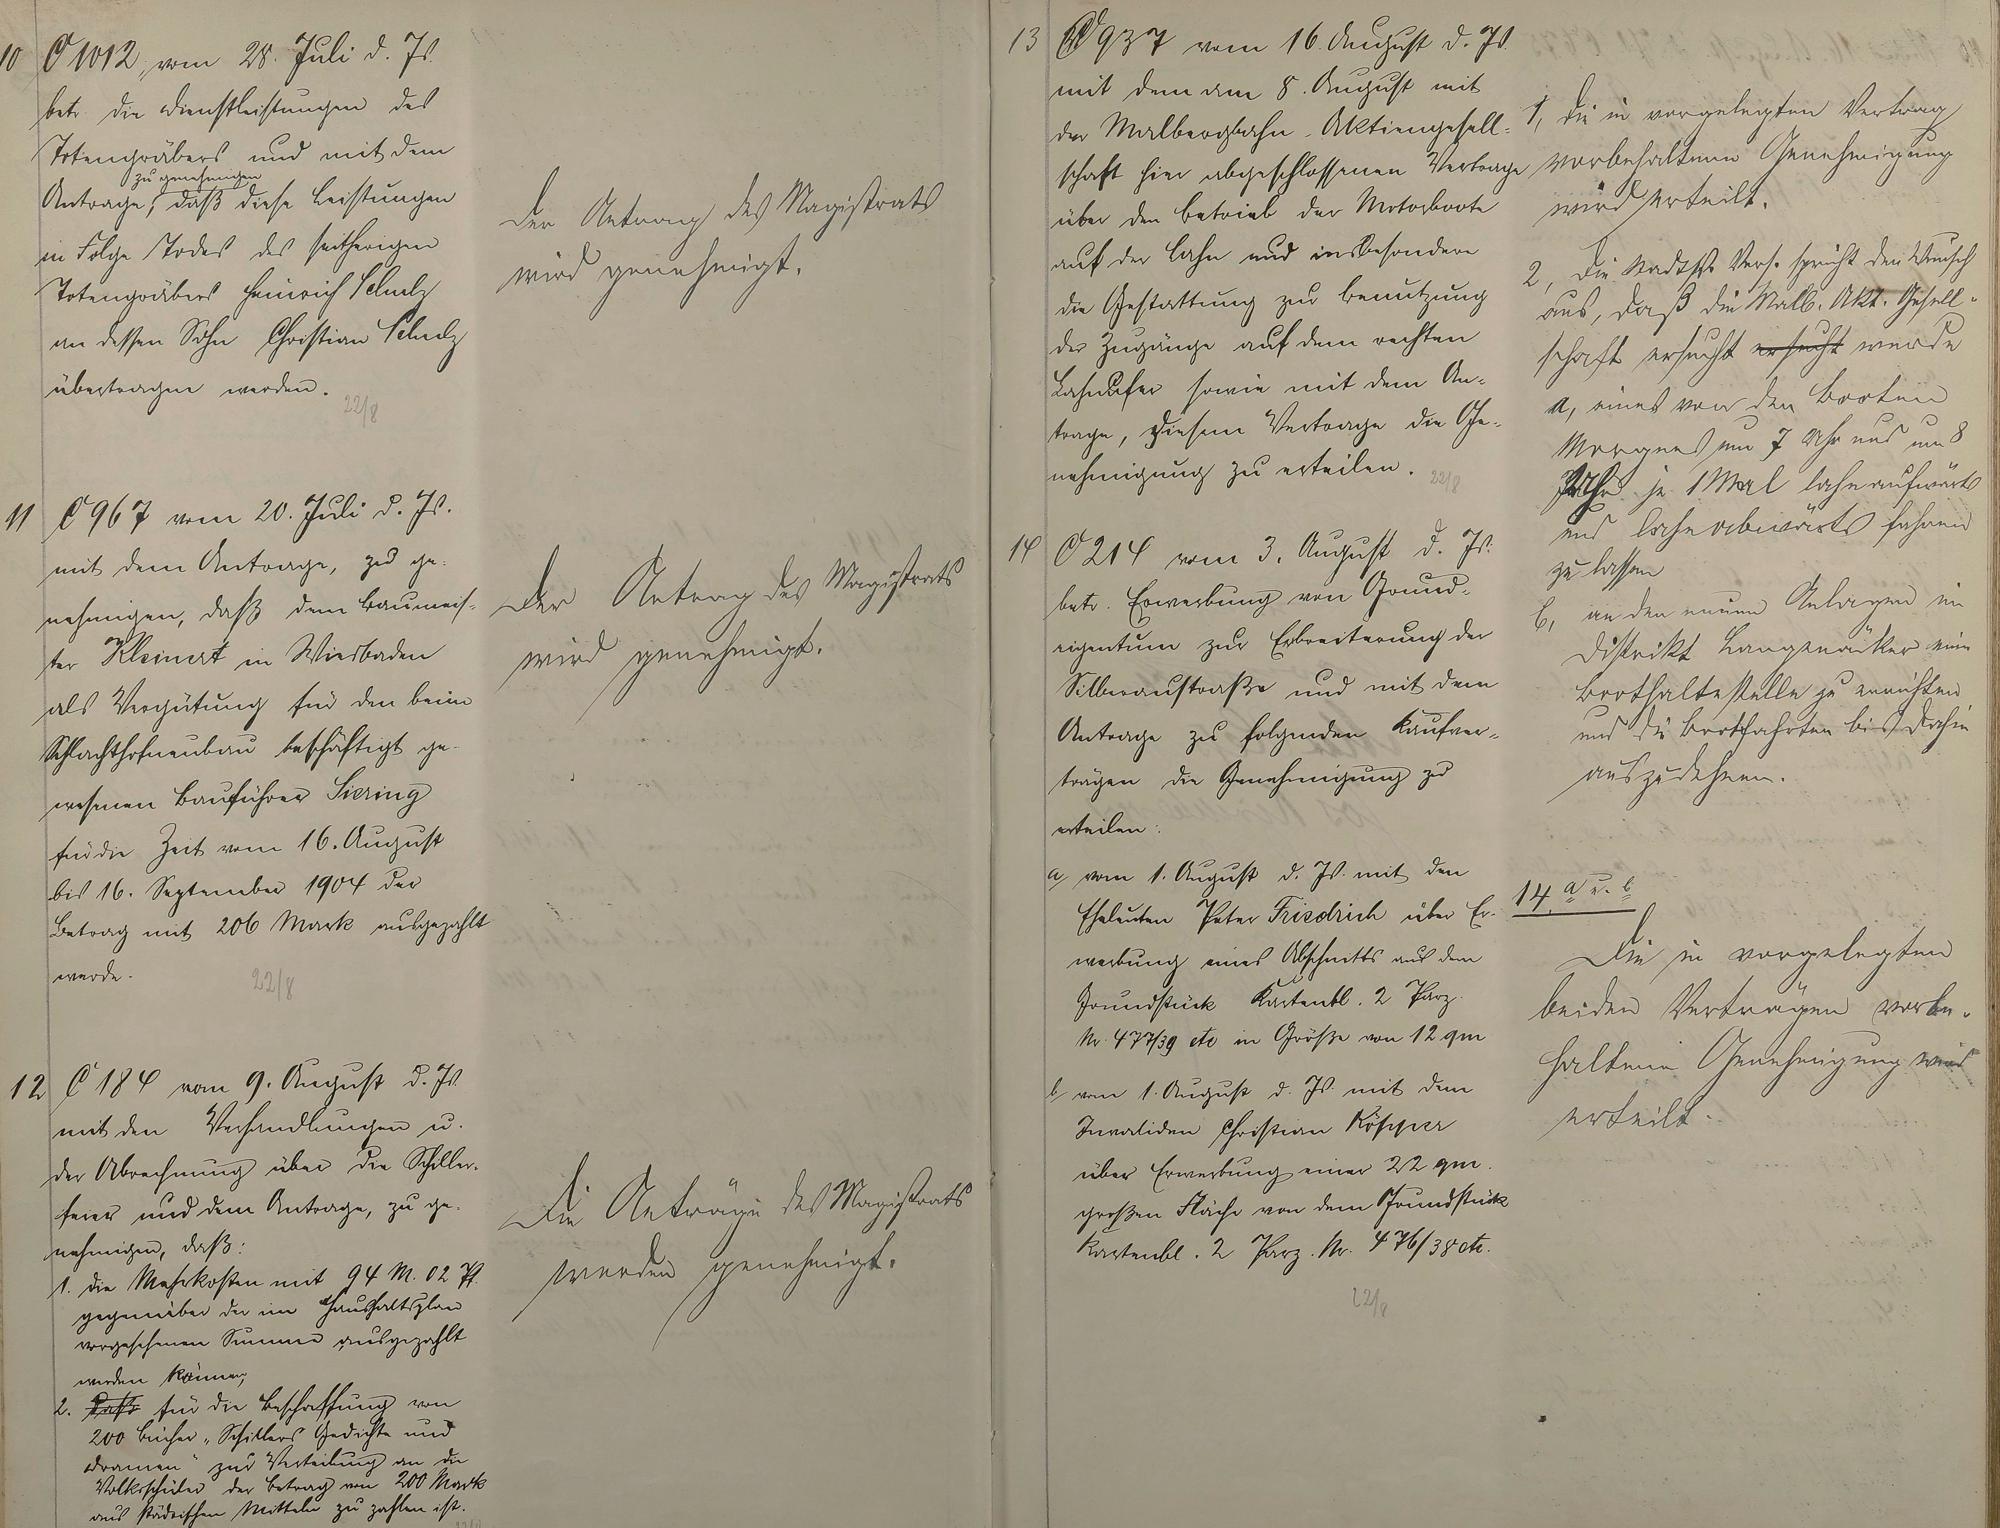 10 C 1012, vom 28. Juli d. Js.
betr. die Dienstleistungen des
Totengräbers und mit dem
zu genehmigen
Antrage, daß diese Leistungen
in Folge Todes des seitherigen
Totengräbers Heinrich Schulz
an dessen Sohn Christian Schulz
übertragen werden.
22/8
Der Antrag des Magistrats
wird genehmigt.
11 C 967 vom 20. Juli d. Js.
mit dem Antrage, zu ge-
nehmigen, daß dem Baumeis-
ter Kleinert in Wiesbaden
als Vergütung für den beim
Schlachthofneubau beschäftigt ge-
wesenen Bauführer Siering
für die Zeit vom 16. August
bis 16. September 1904 der
Betrag mit 206 Mark ausgezahlt
werde.
22/8
Der Antrag des Magistrats
wird genehmigt.
12 C 184 vom 9. August d. Js.
mit den Verhandlungen u.
der Abrechnung über die Schiller-
feier und dem Antrage, zu ge-
nehmigen, daß:
1. die Mehrkosten mit 94 M. 02 Pf.
gegenüber der im Haushaltsplan
vorgesehenen Summe ausgezahlt
werden können,
2. daß für die Beschaffung von
200 Bücher „Schillers Gedichte und
Dramen" zur Verteilung an die
Volksschüler der Betrag von 200 Mark
aus städtischen Mitteln zu zahlen ist.
Die Anträge des Magistrats
werden genehmigt.
13 C 937 vom 16. August d. Js.
mit dem am 8. August mit
der Malbergbahn-Aktiengesell-
schaft hier abgeschlossenen Vertrage
über den Betrieb der Motorboote
auf der Lahn und insbesondere
die Gestattung zur Benutzung
der Zugänge auf dem rechten
Lahnufer sowie mit dem An-
trage, diesem Vertrage die Ge-
nehmigung zu erteilen.
22/8
1, Die in vorgelegten Vertrag
vorbehaltene Genehmigung
wird erteilt.
2, Die Stadtv. Vers. spricht den Wunsch
aus, daß die Malb. Akt. Gesell-
schaft ersucht ersucht werde
a, eines von den Booten
Morgens um 7 Uhr und um 8
Uhr je 1 Mal lahnaufwärts
und lahnabwärts fahren
zu lassen
b, an den neuen Anlagen im
Distrikt Langenäcker eine
Boothaltestelle zu errichten
und die Bootfahrten bis dahin
auszudehnen.
14 C 214 vom 3. August d. Js.
betr. Erwerbung von Grund-
eigentum zur Erbreiterung der
Silberaustraße und mit dem
Antrage zu folgenden Kaufver-
trägen die Genehmigung zu
erteilen:
a, vom 1. August d. Js. mit den
Eheleuten Peter Friedrich über Er-
werbung eines Abschnitts aus dem
Grundstück Kartenbl. 2 Parz.
Nr. 477/39 etc in Größe von 12 qm
b, vom 1. August d. Js. mit dem
Invaliden Christian Kösper
über Erwerbung einer 22 qm
großen Fläche von dem Grundstück
Kartenbl. 2 Parz. Nr. 476/38 etc.
22/8
14 a u. b
Die in vorgelegten
beiden Verträgen vorbe-
haltene Genehmigung wird
erteilt.